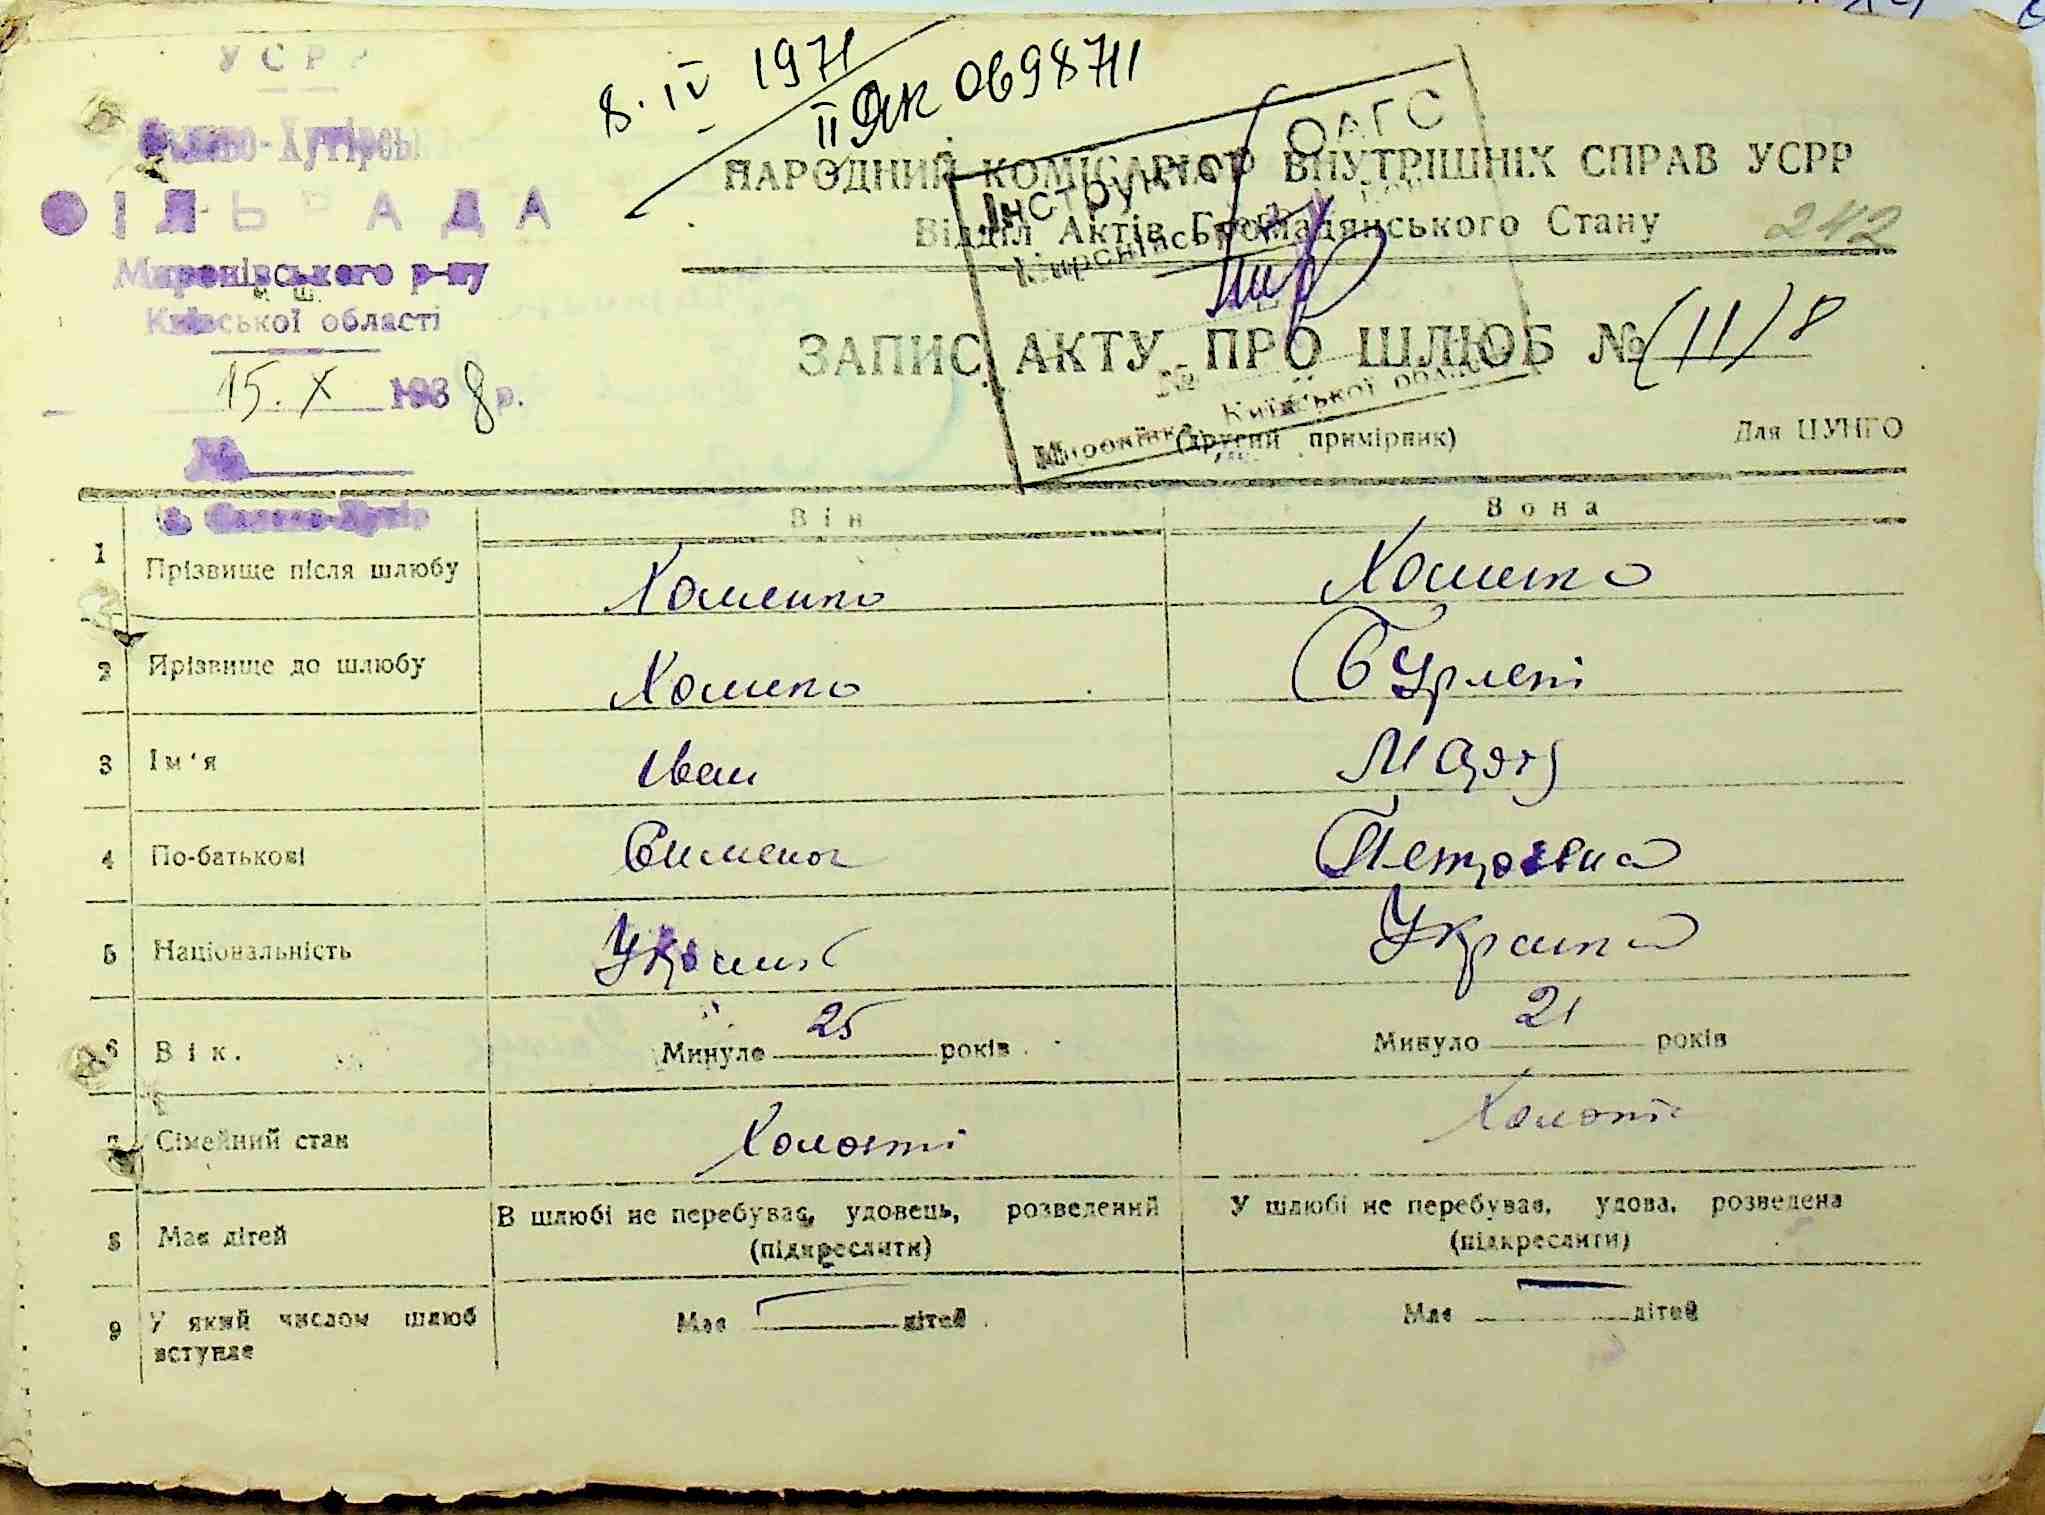 УСРР
СІЛЬРАДА
Миронівського р-ну
Київської області
15. X 1938 р.
№
8. IV 1971
II ЯК 069871
Інструктор ОАГС
Київської області
НАРОДНИЙ КОМІСАРІАТ ВНУТРІШНІХ СПРАВ УСРР
Відділ Актів Громадянського Стану 242
ЗАПИС АКТУ ПРО ШЛЮБ № (11) 8
(другий примірник)
Для ЦУНГО
Він Вона
1 Прізвище після шлюбу Хоменко Хоменко
2 Прізвище до шлюбу Хоменко
3 Ім'я Іван
4 По-батькові Петровна
5 Національність
6 Вік. Минуло 25 років Минуло 21 років
7 Сімейний стан Холості Холоті
8 Має дітей В шлюбі не перебував, удовець, розведений У шлюбі не перебував, удова, розведена
(підкреслити) (підкреслити)
9 У який числом шлюб Має — дітей Має — дітей
вступає